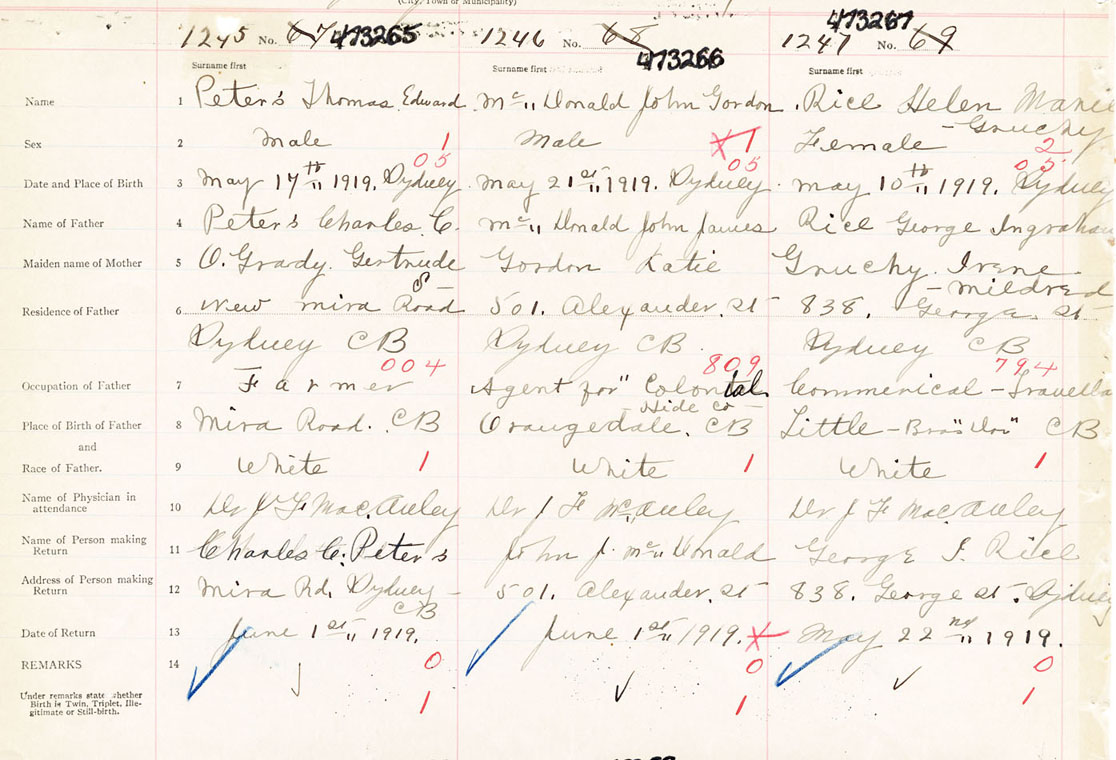 (City, Town or Municipality)
1245 No. 67 473265 1246 No. 68 473266 1247 No. 69 473267
Surname first Surname first Surname first
Name 1 Peters Thomas Edward Mc" Donald John Gordon Rice Helen Marie
- Gruchy
Sex 2 Male 1 Male 1 Female 2
05 05 05
Date and Place of Birth 3 May 17th" 1919. Sydney May 21st" 1919. Sydney May 10th" 1919. Sydney
Name of Father 4 Peters Charles C. Mc" Donald John James Rice George Ingraham
Maiden name of Mother 5 O. Grady. Gertrude Gordon Katie Gruchy. Irene
S - - Mildred
Residence of Father 6 New Mira Road 501. Alexander. St 838. George. St
Sydney CB Sydney CB Sydney CB
004 809 794
Occupation of Father 7 Farmer Agent for" Colonial Commerical - Travella
Hide Co -
Place of Birth of Father 8 Mira Road. CB Orangedale. CB Little - Bras "dor" CB
and
Race of Father. 9 White 1 White 1 White 1
Name of Physician in
attendance 10 Dr J F MacAuley Dr J F McAuley Dr J F MacAuley
Name of Person making
Return 11 Charles C. Peters John J. Mc" Donald George I. Rice
Address of Person making
Return 12 Mira Rd. Sydney - 501. Alexander. St 838. George St. Sydney
CB
Date of Return 13 June 1st" 1919. June 1st" 1919. May 22nd" 1919.
REMARKS 14 0 0 0
Under remarks state whether
Birth is Twin, Triplet, Ille-
gitimate or Still-birth. 1 1 1